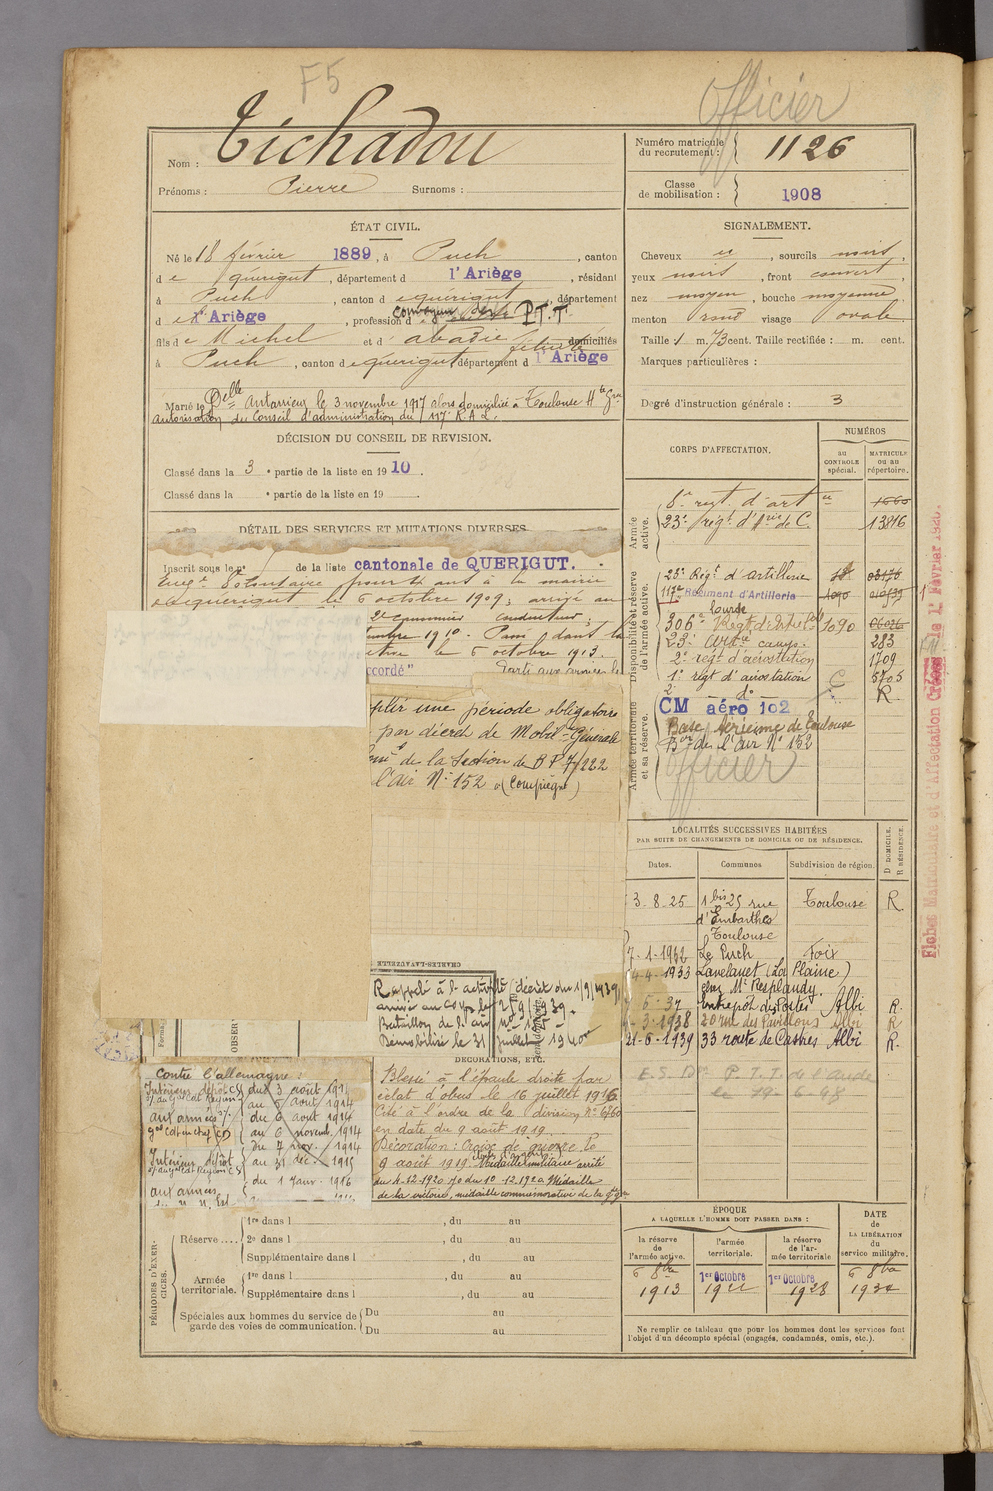 F5
Officier
Nom : Tichadou
Prénoms : Pierre Surnoms :
Numéro matricule du recrutement : 1126
Classe de mobilisation : 1908
ÉTAT CIVIL.
Né le 18 février 1889, à Puch, canton
de quérigut, département d l'Ariège, résidant
à Puch, canton de quérigut, département
d l'Ariège, profession d convoyeur des P.T.T.
fils de Michel et d' abadie félicité domiciliés
à Puch, canton de quérigut département d l'Ariège
Marié le Delle Antarrieu le 3 novembre 1917 alors domicilié à Toulouse Hte Gne
autorisation du Conseil d'administration du 117e R.A.L.
SIGNALEMENT.
Cheveux et, sourcils noirs,
yeux noirs, front couvert,
nez moyen, bouche moyenne
menton rond visage ovale
Taille 1 m. 73 cent. Taille rectifiée : m. cent.
Marques particulières :
Degré d'instruction générale : 3
DÉCISION DU CONSEIL DE REVISION.
Classé dans la 3e partie de la liste en 1910.
Classé dans la e partie de la liste en 19
DÉTAIL DES SERVICES ET MUTATIONS DIVERSES.
Inscrit sous le n° de la liste cantonale de QUERIGUT.
Engt Volontaire pour 4 ans à la mairie
de quérigut le 6 octobre 1909; arrivé au
2e canonnier conducteur;
1910. Passé dans la
le 6 octobre 1913.
ccordé"
plir une période obligatoire
par décret de Mobil-Générale
de la Section de B P 7/222
l'Air N° 152 (Compiègne)
CHARLES-LAVAUZELLE
Rappelé à l'activité décret du 1/9/1939
arrivé au corps le 2/9/39.
Bataillon de l'air n° 152
Démobilisé le 31 juillet 1940
CORPS D'AFFECTATION.
NUMÉROS
au CONTROLE spécial.
MATRICULE ou au répertoire.
Armée active.
8e regt d'art ie 1660
23e régt d'Arie de C. 13816
Disponibilité et réserve de l'armée active.
23e Régt d'artillerie
117e Régiment d'Artillerie 1090
lourde
306e Régt d'Artie 1090
23e Artie camp. 283
2e regt d'aérostation 1709
1er régt d'aérostation 5705
2e do R
Armée territoriale et sa réserve.
CM aéro 102
Base Aérienne de Toulouse
Bon de l'Air N° 152
Officier
Fiches Matriculaire et d'Affectation Créées le 1er Février 1926.
LOCALITÉS SUCCESSIVES HABITÉES
PAR SUITE DE CHANGEMENTS DE DOMICILE OU DE RÉSIDENCE.
D DOMICILE. R RÉSIDENCE.
Dates. Communes Subdivision de région.
3-8-25 1 bis 25 rue Toulouse R.
d'Embarthes
Toulouse
7-1-1932 Le Puch Foix
4-4-1933 Lavelanet (La Plaine)
chez Mr Resplandy
5-37 Entrepôt des Postes Albi R.
3-1938 20 rue des Pavillons Albi R
21-6-1939 33 route de Castres Albi R.
E.S. Don P.T.T. de l'Aude
le 19-6-48
OBSER
Contre l'allemagne :
Intérieur dépôt CS du 3 août 1914
au 5 août 1914
aux armées du 6 août 1914
au 6 novemb. 1914
du 7 nov. 1914
Intérieur dépôt au 31 déc. 1915
du 1 Janv. 1916
aux armées
DÉCORATIONS, ETC.
Blessé à l'épaule droite par
éclat d'obus le 16 juillet 1916
Cité à l'ordre de la division n° 6760
en date du 9 août 1919.
Décoration : Croix de guerre le
9 août 1919. Médaille militaire arrêté
du 4-12-1920 JO du 10-12-1920 Médaille
de la victoire, médaille commémorative de la gde gre
PÉRIODES D'EXERCICES.
Réserve.... 1re dans l , du au
2e dans l , du au
Supplémentaire dans l , du au
Armée territoriale. 1re dans l , du au
Supplémentaire dans l , du au
Spéciales aux hommes du service de garde des voies de communication. Du au
Du au
ÉPOQUE
A LAQUELLE L'HOMME DOIT PASSER DANS :
la réserve de l'armée active.
l'armée territoriale.
la réserve de l'armée territoriale
DATE de LA LIBÉRATION du service militaire.
6 8bre 1913
1er Octobre
1er Octobre 1928
6 8bre
Ne remplir ce tableau que pour les hommes dont les services font
l'objet d'un décompte spécial (engagés, condamnés, omis, etc.).